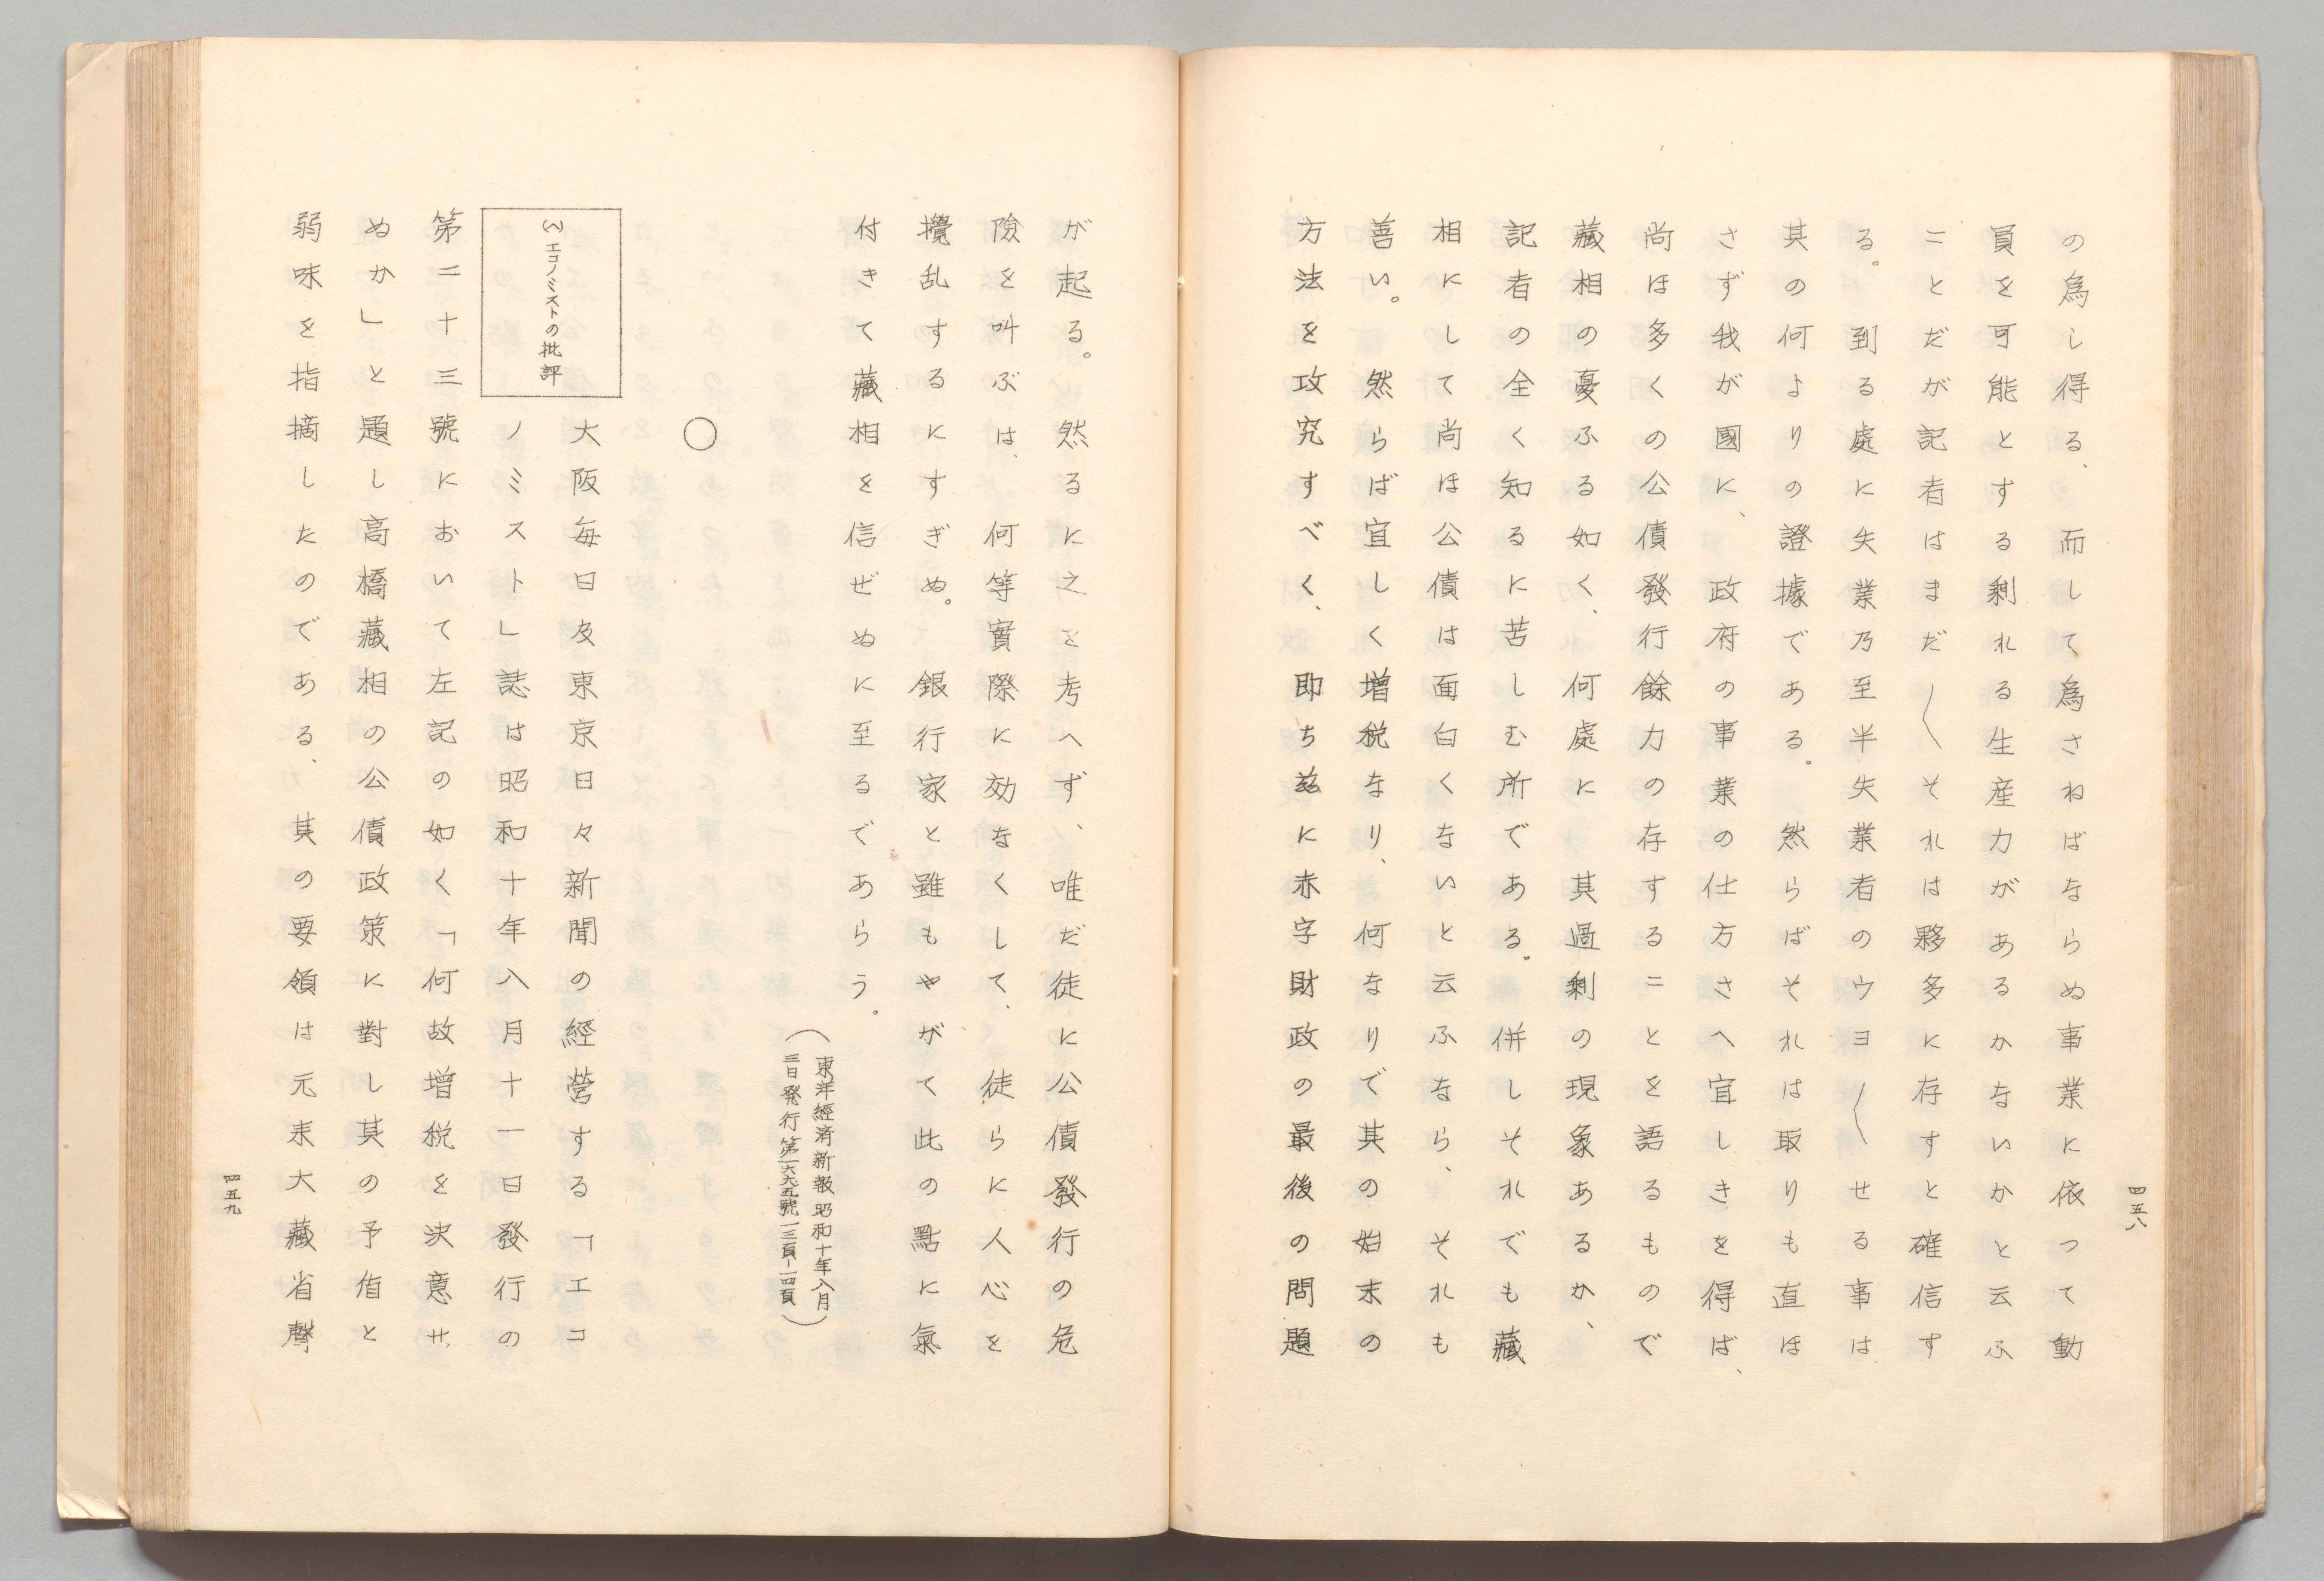 の為し得る、而して為さねばならぬ事業に依つて動
員を可能とする剰れる生産力があるかないかと云ふ
ことだが記者はまだ〱それは夥多に存すと確信す
る。到る處に失業乃至半失業者のウヨ〱せる事は
其の何よりの證據である。然らばそれは取りも直ほ
さず我が國に、政府の事業の仕方さへ宜しきを得ば、
尚ほ多くの公債發行餘力の存することを語るもので
藏相の憂ふる如く、何處に其過剰の現象あるか、
記者の全く知るに苦しむ所である。併しそれでも藏
相にして尚ほ公債は面白くないと云ふなら、それも
善い。然らば宜しく増税なり、何なりで其の始末の
方法を攻究すべく、即ち茲に赤字財政の最後の問題
四五八
が起る。然るに之を考へず、唯だ徒に公債發行の危
險を叫ぶは、何等實際に効なくして、徒らに人心を
攪乱するにすぎぬ。銀行家と雖もやがて此の點に氣
付きて藏相を信ぜぬに至るであらう。
(東洋經済新報昭和十年八月
三日発行第一六六五號一三頁-一四頁)
○
(3)エコノミストの批評
大阪毎日及東京日々新聞の經營する「エコ
ノミスト」誌は昭和十年八月十一日發行の
第二十三號において左記の如く「何故増税を決意せ
ぬか」と題し高橋藏相の公債政策に對し其の予盾と
弱味を指摘したのである、其の要領は元来大藏省聲
四五九